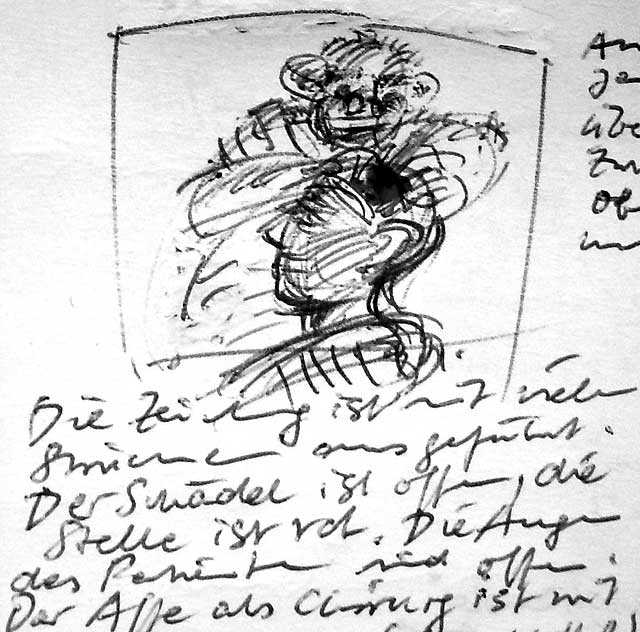 An
je
übe
Zu
ob
un
Die Zeichnung ist mit vielen
Strichen ausgeführt.
Der Schädel ist offen, die
Stelle ist rot. Die Augen
des Patienten sind offen.
Der Affe als Chirurg ist mit